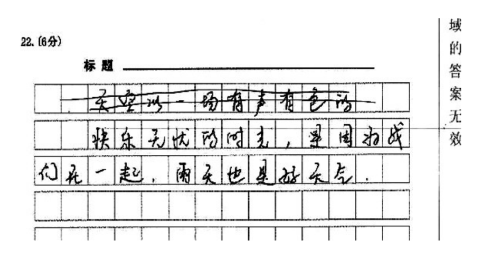 22.(6分)
标题
天空以一场有声有色的
快乐无忧的时光，是因为我
们在一起，雨天也是好天气.
域的答案无效